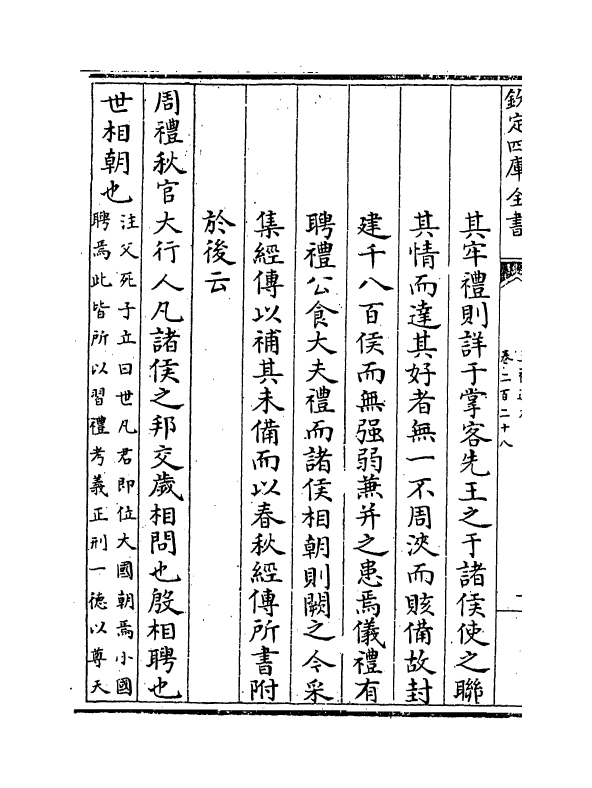 欽定四庫全書
卷二百二十八
其牢禮則詳于掌客先王之于諸侯使之聯
其情而達其好者無一不周浹而賅備故封
建千八百侯而無强弱兼并之患焉儀禮有
聘禮公食大夫禮而諸侯相朝則闕之今采
集經傳以補其未備而以春秋經傳所書附
於後云
周禮秋官大行人凡諸侯之邦交歲相問也殷相聘也
世相朝也
注父死子立曰世凡君即位大國朝焉小國
聘焉此皆所以習禮考義正刑一德以尊天